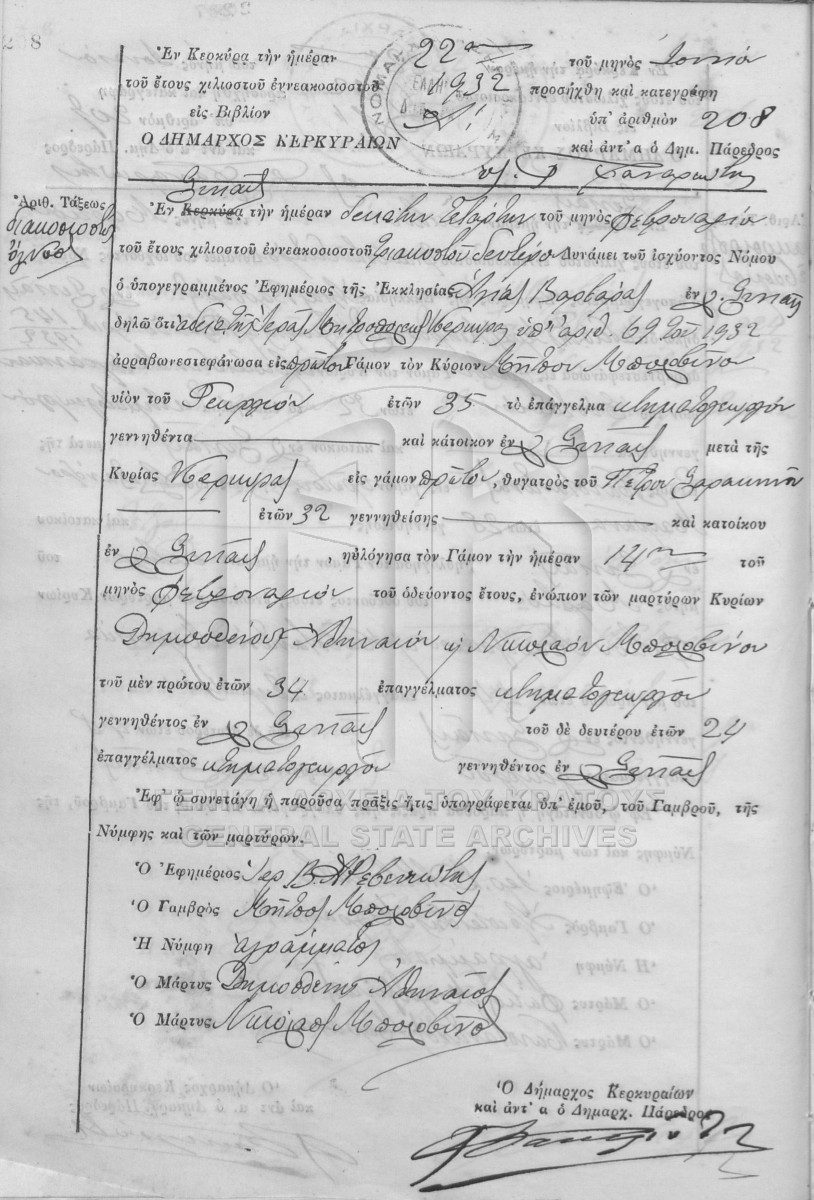 208
Ἐν Κερκύρᾳ τὴν ἡμέραν 22αν τοῦ μηνὸς Ἰουνίου
τοῦ ἔτους χιλιοστοῦ ἐννεακοσιοστοῦ 1932 προσήχθη καὶ κατεγράφη
εἰς Βιβλίον Α! ὑπ' ἀριθμὸν 208
Ὁ ΔΗΜΑΡΧΟΣ ΚΕΡΚΥΡΑΙΩΝ καὶ ἀντ' α ὁ Δημ. Πάρεδρος
Ἀριθ. Τάξεως
διακοσιοστὸς
ὄγδοος
Σιναῖς
Ἐν Κερκύρᾳ τὴν ἡμέραν δεκάτην τετάρτην τοῦ μηνὸς Φεβρουαρίου
τοῦ ἔτους χιλιοστοῦ ἐννεακοσιοστοῦ τριακοστοῦ δευτέρου Δυνάμει τοῦ ἰσχύοντος Νόμου
ὁ ὑπογεγραμμένος Ἐφημέριος τῆς Ἐκκλησίας Ἁγίας Βαρβάρας ἐν χ. Σιναῖς
δηλῶ ὅτι ἀδείᾳ τῆς Ἱερᾶς Μητροπόλεως Κερκύρας ὑπ' ἀριθ. 69 τοῦ 1932
ἀρραβωνεστεφάνωσα εἰς πρῶτον Γάμον τὸν Κύριον Μῆτσον Μπολοβῖνον
υἱὸν τοῦ Γεωργίου ἐτῶν 35 τὸ ἐπάγγελμα κτηματογεωργόν
γεννηθέντα καὶ κάτοικον ἐν χ Σιναῖς μετὰ τῆς
Κυρίας Κερκύρας εἰς γάμον πρῶτον, θυγατρὸς τοῦ Πέτρου Σαρακηνοῦ
ἐτῶν 32 γεννηθείσης καὶ κατοίκου
ἐν χ Σιναῖς, ηὐλόγησα τὸν Γάμον τὴν ἡμέραν 14ην τοῦ
μηνὸς Φεβρουαρίου τοῦ ὁδεύοντος ἔτους, ἐνώπιον τῶν μαρτύρων Κυρίων
Δημοσθένους Ἀθηναίου κ Νικολάου Μπολοβίνου
τοῦ μὲν πρώτου ἐτῶν 34 ἐπαγγέλματος κτηματογεωργοῦ
γεννηθέντος ἐν χ Σιναῖς τοῦ δὲ δευτέρου ἐτῶν 24
ἐπαγγέλματος κτηματογεωργοῦ γεννηθέντος ἐν χ Σιναῖς
Ἐφ' ᾧ συνετάγη ἡ παροῦσα πρᾶξις ἥτις ὑπογράφεται ὑπ' ἐμοῦ, τοῦ Γαμβροῦ, τῆς
Νύμφης καὶ τῶν μαρτύρων.
ΓΕΝΙΚΑ ΑΡΧΕΙΑ ΤΟΥ ΚΡΑΤΟΥΣ
GENERAL STATE ARCHIVES
Ὁ Ἐφημέριος Ἱερ Β.
Ὁ Γαμβρὸς Μῆτσος Μπολοβῖνος
Ἡ Νύμφη ἀγράμματος
Ὁ Μάρτυς Δημοσθένης Ἀθηναῖος
Ὁ Μάρτυς Νικόλαος Μπολοβῖνος
Ὁ Δήμαρχος Κερκυραίων
καὶ ἀντ' α ὁ Δημαρχ. Πάρεδρος